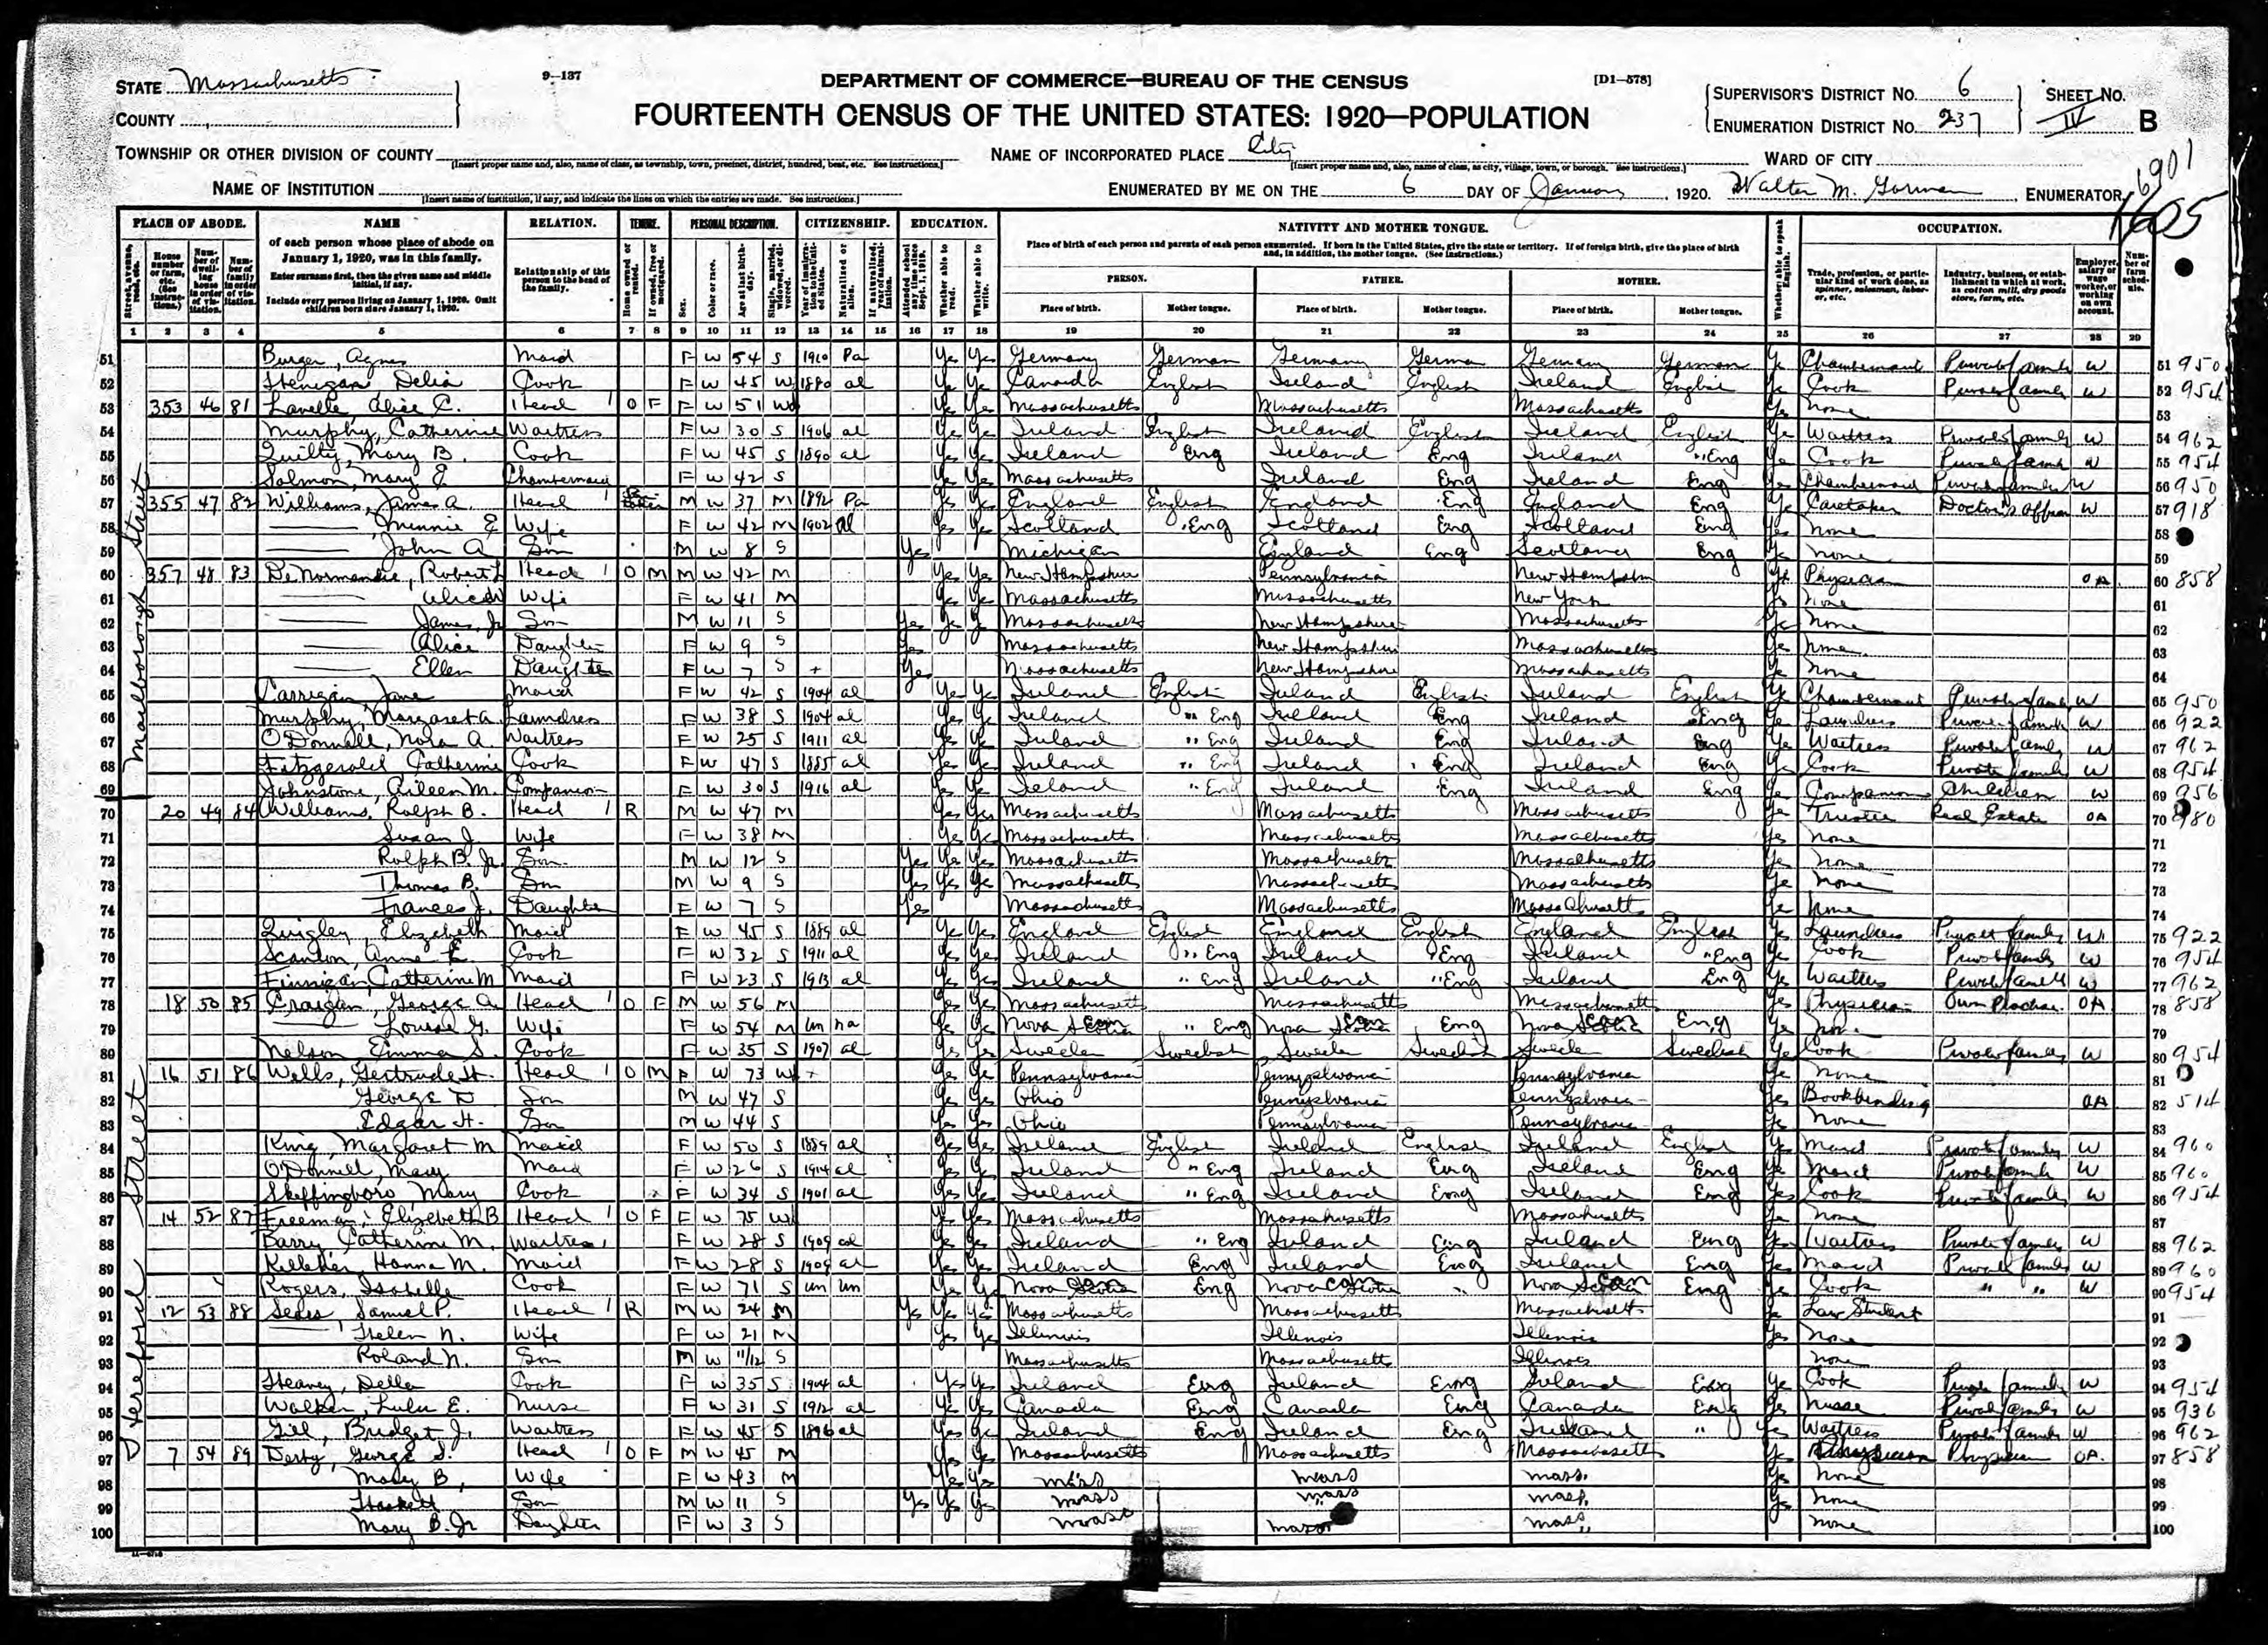 STATE Massachusetts
9—137
DEPARTMENT OF COMMERCE—BUREAU OF THE CENSUS
[D1—578]
COUNTY
FOURTEENTH CENSUS OF THE UNITED STATES: 1920—POPULATION
SUPERVISOR'S DISTRICT No. 6
ENUMERATION DISTRICT No. 237
SHEET No. IV B
TOWNSHIP OR OTHER DIVISION OF COUNTY
[Insert proper name and, also, name of class, as township, town, precinct, district, hundred, beat, etc. See instructions.]
NAME OF INCORPORATED PLACE City
[Insert proper name and, also, name of class, as city, village, town, or borough. See instructions.]
WARD OF CITY
6901
NAME OF INSTITUTION
[Insert name of institution, if any, and indicate the lines on which the entries are made. See instructions.]
ENUMERATED BY ME ON THE 6 DAY OF January, 1920. Walter M. Gorman, ENUMERATOR
PLACE OF ABODE. NAME RELATION. TENURE. PERSONAL DESCRIPTION. CITIZENSHIP. EDUCATION. NATIVITY AND MOTHER TONGUE. OCCUPATION.
of each person whose place of abode on January 1, 1920, was in this family.
Enter surname first, then the given name and middle initial, if any.
Include every person living on January 1, 1920. Omit children born since January 1, 1920.
Relationship of this person to the head of the family.
Place of birth of each person and parents of each person enumerated. If born in the United States, give the state or territory. If of foreign birth, give the place of birth and, in addition, the mother tongue. (See instructions.)
PERSON. FATHER. MOTHER.
Place of birth. Mother tongue. Place of birth. Mother tongue. Place of birth. Mother tongue.
1 2 3 4 5 6 7 8 9 10 11 12 13 14 15 16 17 18 19 20 21 22 23 24 25 26 27 28 29
Marlborough Street
Hereford Street
51 Burger, Agnes Maid F W 54 S 1910 Pa Yes Yes Germany German Germany Germa Germany German Ye Chambermaid Private family W 51 950
52 Henigan Delia Cook F W 45 W 1880 al Ye Ye Canada English Ireland English Ireland English Ye Cook Private family W 52 954
53 353 46 81 Lavelle, Alice C. Head 1 O F F W 51 Wd Yes Yes Massachusetts Massachusetts Massachusetts Yes none 53
54 Murphy, Catherine Waitress F W 30 S 1906 al Ye Ye Ireland English Ireland English Ireland English Ye Waitress Private family W 54 962
55 Quilty, Mary B. Cook F W 45 S 1890 al Yes Ye Ireland Eng Ireland Eng Ireland Eng Ye Cook Private famil W 55 954
56 Salmon, Mary E Chambermaid F W 42 S Yes Ye Massachusetts Ireland Eng Ireland Eng Ye Chambermaid Private family W 56 950
57 355 47 82 Williams, James A. Head 1 M W 37 M 1892 Pa Ye Ye England English England Eng England Eng Ye Caretaker Doctor's Office W 57 918
58 Minnie E Wife F W 42 M 1902 al Yes Ye Scotland Eng Scotland Eng Scotland Eng Yes none 58
59 John A Son M W 8 S Yes Michigan England Eng Scotland Eng Ye none 59
60 357 48 83 DeNormandie, Robert L Head 1 O M M W 42 M Yes Yes New Hampshire Pennsylvania New Hampshire Ye Physician OA 60 858
61 Alice W Wife F W 41 M Yes Ye Massachusetts Massachusetts New York Ye none 61
62 James, Jr Son M W 11 S Yes Ye Ye Massachusetts New Hampshire Massachusetts Ye none 62
63 Alice Daughter F W 9 S Yes Massachusetts New Hampshire Massachusetts Ye none 63
64 Ellen Daughter F W 7 S Ye Massachusetts New Hampshire Massachusetts Ye none 64
65 Carrigan, Jane Maid F W 42 S 1904 al Ye Ye Ireland English Ireland English Ireland English Ye Chambermaid Private family W 65 950
66 Murphy, Margaret A. Laundress F W 38 S 1904 al Yes Ye Ireland Eng Ireland Eng Ireland Eng Ye Laundress Private family W 66 922
67 O'Donnell, Nora A. Waitress F W 25 S 1911 al Yes Ye Ireland " Eng Ireland Eng Ireland Eng Ye Waitress Private family W 67 962
68 Fitzgerald Catherine Cook F W 47 S 1885 al Yes Ye Ireland " Eng Ireland Eng Ireland Eng Ye Cook Private family W 68 954
69 Johnstone, Aileen M. Companion F W 30 S 1916 al Ye Ye Ireland " Eng Ireland Eng Ireland Eng Ye Companion Children W 69 956
70 20 49 84 Williams, Ralph B. Head 1 R M W 47 M Yes Yes Massachusetts Massachusetts Massachusetts Ye Trustee Real Estate OA 70 980
71 Susan J. Wife F W 38 M Ye Ye Massachusetts Massachusetts Massachusetts Yes none 71
72 Ralph B. Jr. Son M W 12 S Yes Ye Yes Massachusetts Massachusetts Massachusetts Ye none 72
73 Thomas B. Son M W 9 S Yes Yes Ye Massachusetts Massachusetts Massachusetts Ye none 73
74 Frances J. Daughter F W 7 S Yes Massachusetts Massachusetts Massachusetts Ye none 74
75 Quigley, Elizabeth Maid F W 45 S 1889 al Ye Yes England English England English England English Ye Laundress Private family W 75 922
76 Scanlon, Anne E. Cook F W 32 S 1911 al Ye Yes Ireland " Eng Ireland " Eng Ireland " Eng Ye Cook Private family W 76 954
77 Finnigan, Catherine M Maid F W 23 S 1913 al Yes Yes Ireland " Eng Ireland " Eng Ireland Eng Ye Waitress Private family W 77 962
78 18 50 85 Craigin, George A. Head 1 O F M W 56 M Yes Yes Massachusetts Massachusetts Massachusetts Yes Physician Own Practice OA 78 858
79 Louise G. Wife F W 54 M un na Ye Ye Nova Scotia " Eng Nova Scotia Eng Nova Scotia Eng Ye none 79
80 Nelson, Emma S. Cook F W 35 S 1907 al Yes Ye Sweden Swedish Sweden Swedish Sweden Swedish Ye Cook Private family W 80 954
81 16 51 86 Wells, Gertrude H. Head 1 O M F W 73 Wd Ye Ye Pennsylvania Pennsylvania Pennsylvania Ye none 81
82 George D Son M W 47 S Ye Ye Ohio Pennsylvania Pennsylvania Yes Bookbinding OA 82 514
83 Edgar H. Son M W 44 S Yes Yes Ohio Pennsylvania Pennsylvania Ye None 83
84 King, Margaret M Maid F W 50 S 1889 al Ye Yes Ireland English Ireland English Ireland English Ye Maid Private family W 84 960
85 O'Donnell, Mary Maid F W 26 S 1914 al Ye Ye Ireland " Eng Ireland Eng Ireland Eng Ye Maid Private family W 85 960
86 Skeffington, Mary Cook F W 34 S 1901 al Ye Yes Ireland " Eng Ireland Eng Ireland Eng Yes Cook Private family W 86 954
87 14 52 87 Freeman, Elizabeth B Head 1 O F F W 75 Wd Yes Yes Massachusetts Massachusetts Massachusetts Ye none 87
88 Barry, Catherine M. Waitress F W 28 S 1909 al Ye Yes Ireland " Eng Ireland Eng Ireland Eng Yes Waitress Private family W 88 962
89 Kelleher, Hanna M. Maid F W 28 S 1909 al Yes Yes Ireland Eng Ireland Eng Ireland Eng Yes Maid Private family W 89 960
90 Rogers, Isabelle Cook F W 71 S un un Ye Ye Nova Scotia Eng Nova Scotia " Nova Scotia Eng Ye Cook " " W 90 954
91 12 53 88 Sears, Samuel P. Head 1 R M W 24 M Yes Yes Yes Massachusetts Massachusetts Massachusetts Ye Law Student 91
92 Helen N. Wife F W 21 M Ye Ye Illinois Illinois Illinois Yes none 92
93 Roland N. Son M W 11/12 S Massachusetts Massachusetts Illinois none 93
94 Heavey, Della Cook F W 35 S 1904 al Yes Yes Ireland Eng Ireland Eng Ireland Eng Ye Cook Private family W 94 954
95 Walker, Lulu E. Nurse F W 31 S 1912 al Ye Yes Canada Eng Canada Eng Canada Eng Ye Nurse Private family W 95 936
96 Gill, Bridget J. Waitress F W 45 S 1896 al Yes Ye Ireland Eng Ireland Eng Ireland " Yes Waitress Private family W 96 962
97 7 54 89 Derby, George S. Head 1 O F M W 45 M Yes Yes Massachusetts Massachusetts Massachusetts Ye Physician Physician OA. 97 858
98 Mary B, Wife F W 43 M Yes Yes mass mass mass. Ye none 98
99 Haskett Son M W 11 S Yes Yes Yes mass mass mass. Yes none 99
100 Mary B. Jr Daughter F W 3 S mass mass mass. none 100